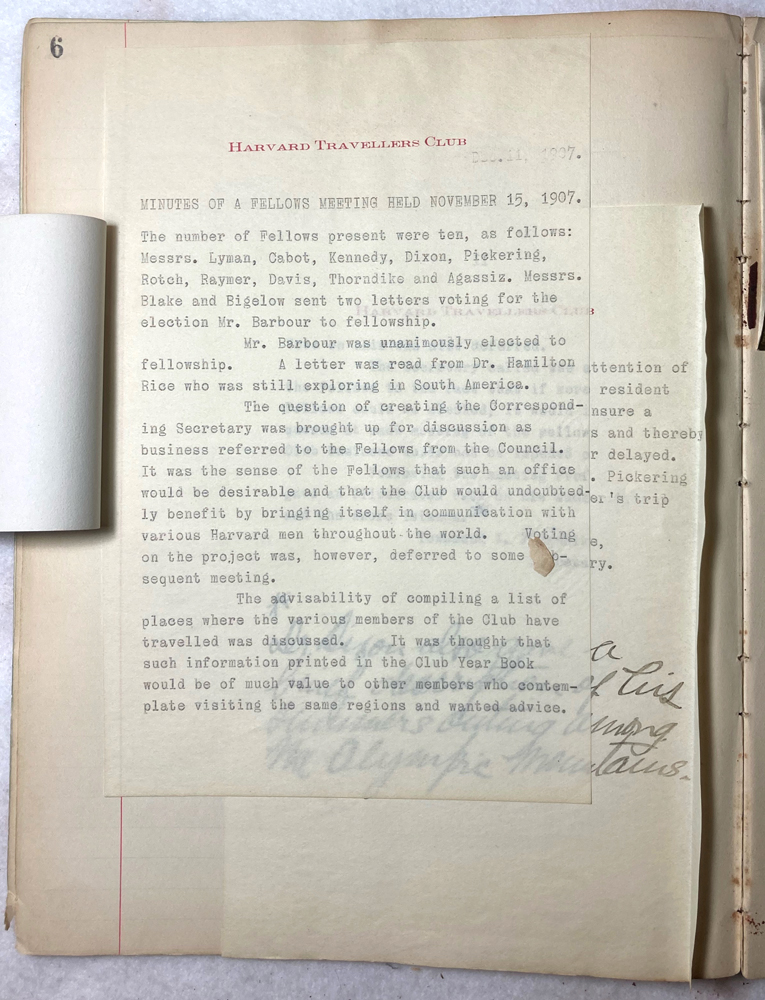 6
HARVARD TRAVELLERS CLUB
1907.
MINUTES OF A FELLOWS MEETING HELD NOVEMBER 15, 1907.
The number of Fellows present were ten, as follows:
Messrs. Lyman, Cabot, Kennedy, Dixon, Pickering,
Rotch, Raymer, Davis, Thorndike and Agassiz. Messrs.
Blake and Bigelow sent two letters voting for the
election Mr. Barbour to fellowship.
Mr. Barbour was unanimously elected to
fellowship. A letter was read from Dr. Hamilton
Rice who was still exploring in South America.
The question of creating the Correspond-
ing Secretary was brought up for discussion as
business referred to the Fellows from the Council.
It was the sense of the Fellows that such an office
would be desirable and that the Club would undoubted-
ly benefit by bringing itself in communication with
various Harvard men throughout the world. Voting
on the project was, however, deferred to some
sequent meeting.
The advisability of compiling a list of
places where the various members of the Club have
travelled was discussed. It was thought that
such information printed in the Club Year Book
would be of much value to other members who contem-
plate visiting the same regions and wanted advice.
HARVARD TRAVELLERS CLUB
ttention of
resident
nsure a
s and thereby
r delayed.
. Pickering
er's trip
e,
ry.
a
of his
among
the Olympic Mountains.